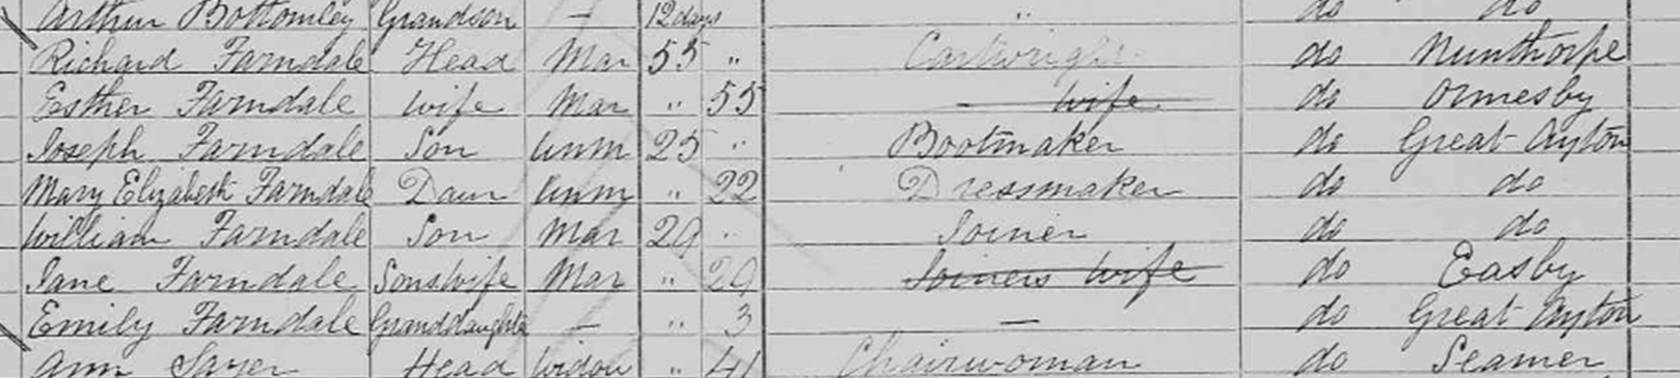 Arthur Bottomley Grandson - 12 days " do do
Richard Farndale Head Mar 55 " Cartwright do Nunthorpe
Esther Farndale Wife Mar " 55 wife do Ormesby
Joseph Farndale Son Unm 25 " Bootmaker do Great Ayton
Mary Elizabeth Farndale Daur Unm " 22 Dressmaker do do
William Farndale Son Mar 29 " Joiner do do
Jane Farndale Sonswife Mar " 29 Joiners Wife do Easby
Emily Farndale Granddaughter - " 3 - do Great Ayton
Ann Sayer Head Widow " 41 Chairwoman do Seamer